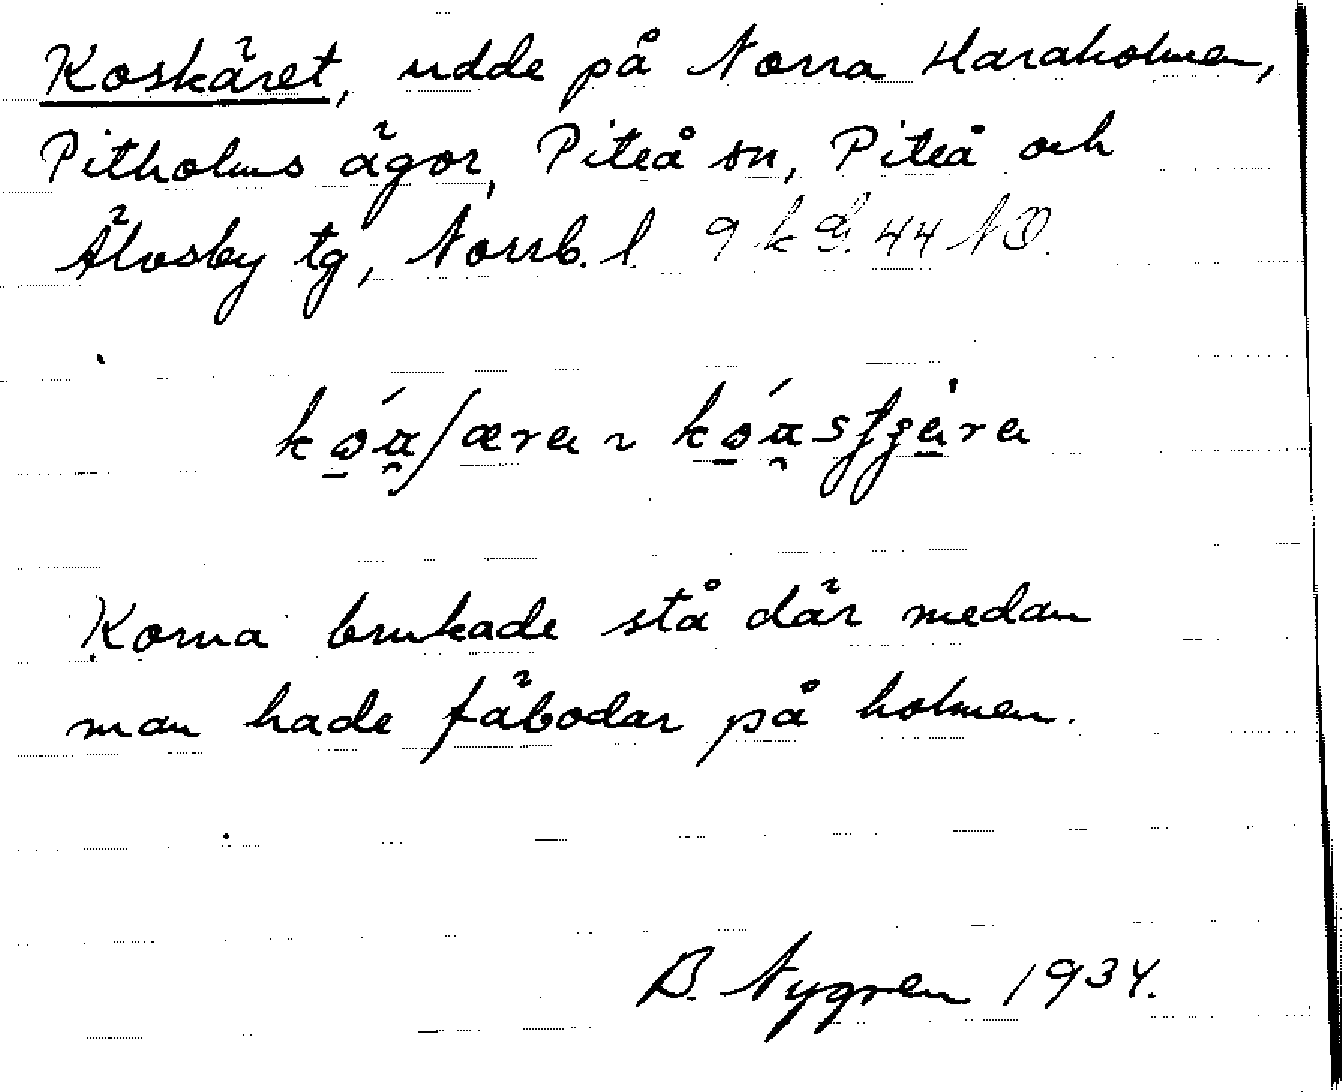 Koskäret, udde på Norra Haraholmen,
Pitholms ägor, Piteå sn, Piteå och
Älvsby tg, Norrb. l. 9 k G. 44 NO.
Korna brukade stå där medan
man hade fäbodar på holmen.
B. Nygren 1934.